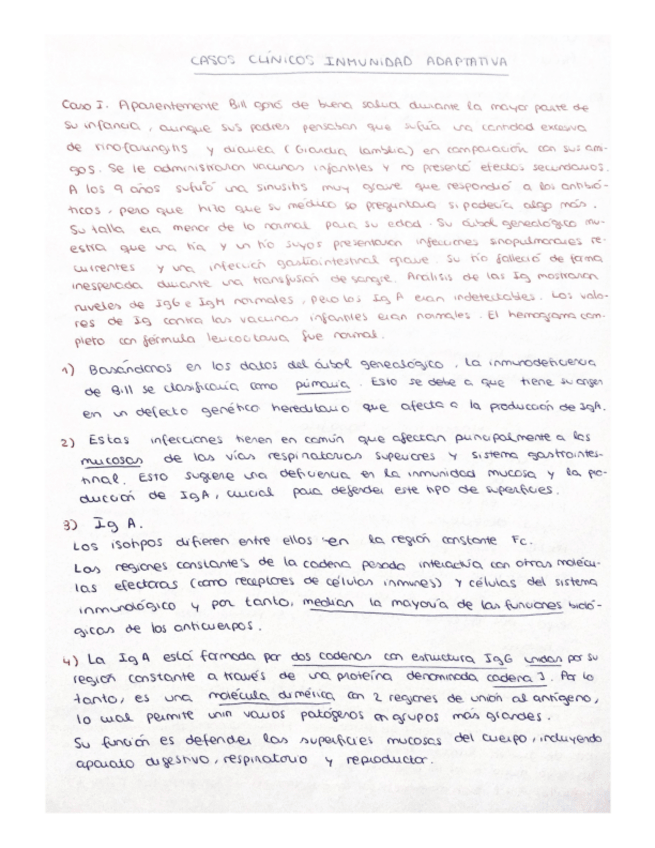 CASOS CLÍNICOS INMUNIDAD ADAPTATIVA
Caso I. Aparentemente Bill gozó de buena salud durante la mayor parte de
su infancia, aunque sus padres pensaban que sufría una cantidad excesiva
de rinofaringitis y diarrea (Giardia lamblia) en comparación con sus ami-
gos. Se le administraron vacunas infantiles y no presentó efectos secundarios.
A los 9 años sufrió una sinusitis muy grave que respondió a los antibió-
ticos, pero que hizo que su médico se preguntara si padecía algo más.
Su talla era menor de lo normal para su edad. Su árbol genealógico mu-
estra que una tía y un tío suyos presentaron infecciones sinopulmonares re-
currentes y una infección gastrointestinal grave. Su tío falleció de forma
inesperada durante una transfusión de sangre. Análisis de las Ig mostraron
niveles de IgG e IgM normales, pero los IgA eran indetectables. Los valo-
res de Ig contra las vacunas infantiles eran normales. El hemograma com-
pleto con fórmula leucocitaria fue normal.
1) Basándonos en los datos del árbol genealógico, la inmunodeficiencia
de Bill se clasificaría como primaria. Esto se debe a que tiene su origen
en un defecto genético hereditario que afecta a la producción de IgA.
2) Estas infecciones tienen en común que afectan principalmente a las
mucosas de las vías respiratorias superiores y sistema gastrointes-
tinal. Esto sugiere una deficiencia en la inmunidad mucosa y la pro-
ducción de IgA, crucial para defender este tipo de superficies.
3) Ig A.
Los isotipos difieren entre ellos en la región constante Fc.
Las regiones constantes de la cadena pesada interactúa con otras molécu-
las efectoras (como receptores de células inmunes) y células del sistema
inmunológico y por tanto, median la mayoría de las funciones bioló-
gicas de los anticuerpos.
4) La IgA está formada por dos cadenas con estructura IgG unidas por su
región constante a través de una proteína denominada cadena J. Por lo
tanto, es una molécula dimérica con 2 regiones de unión al antígeno,
lo cual permite unir varios patógenos en grupos más grandes.
Su función es defender las superficies mucosas del cuerpo, incluyendo
aparato digestivo, respiratorio y reproductor.